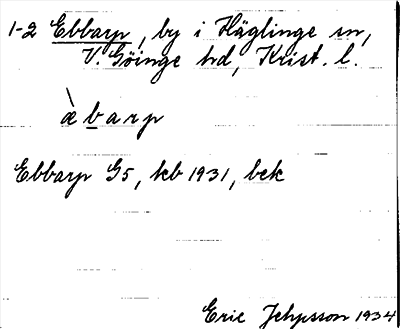 1-2 Ebbarp, by i Häglinge sn,
V. Göinge hd, Krist. l.
æ̀barp
Ebbarp G5, kb 1931, bek
Eric Jepsson 1934